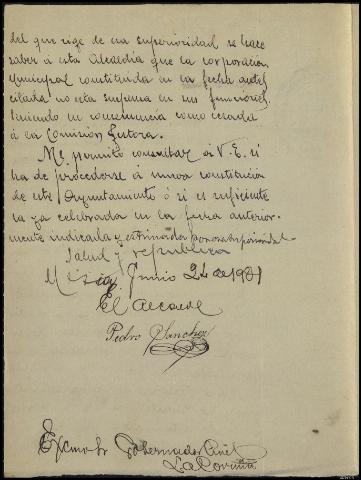 del que rige de esa superioridad se hace
saber á esta Alcaldia que la corporación
municipal constituida en la fecha antes
citada no esta suspensa en sus funciones,
teniendo en consecuencia como cesada
á la Comisión Gestora.
Me permito consultar á V.E. si
ha de procederse á nueva constitución
de este Ayuntamiento ó si es suficiente
la ya celebrada en la fecha anterior-
mente indicada y
Salud y republica
Junio 24 de 1931
El Alcalde
Pedro Sanchez
Excmo Sr Gobernador Civil
La Coruña